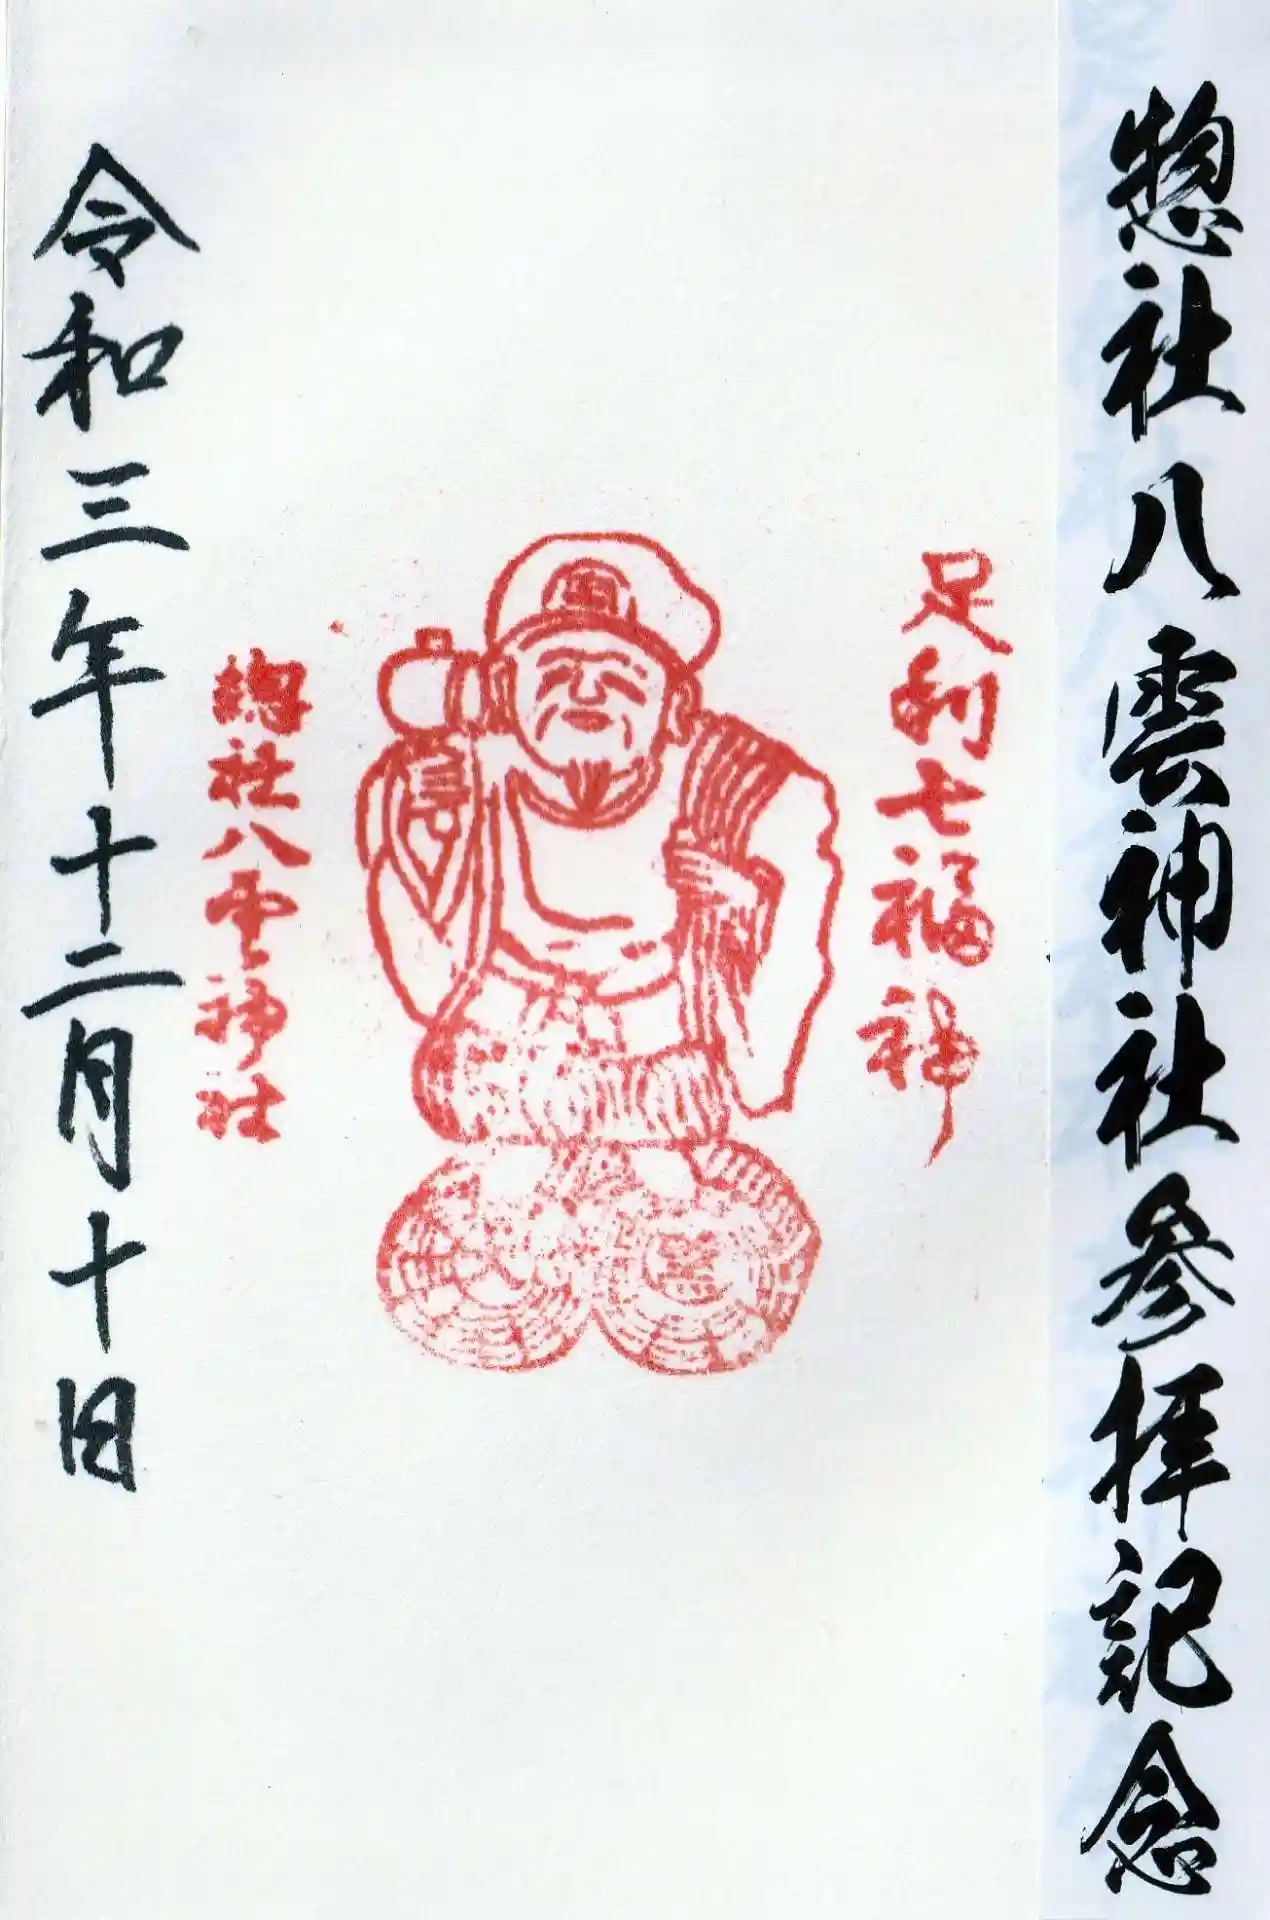 惣社八雲神社参拝記念
足利七福神
總社八雲神社
令和三年十二月十日